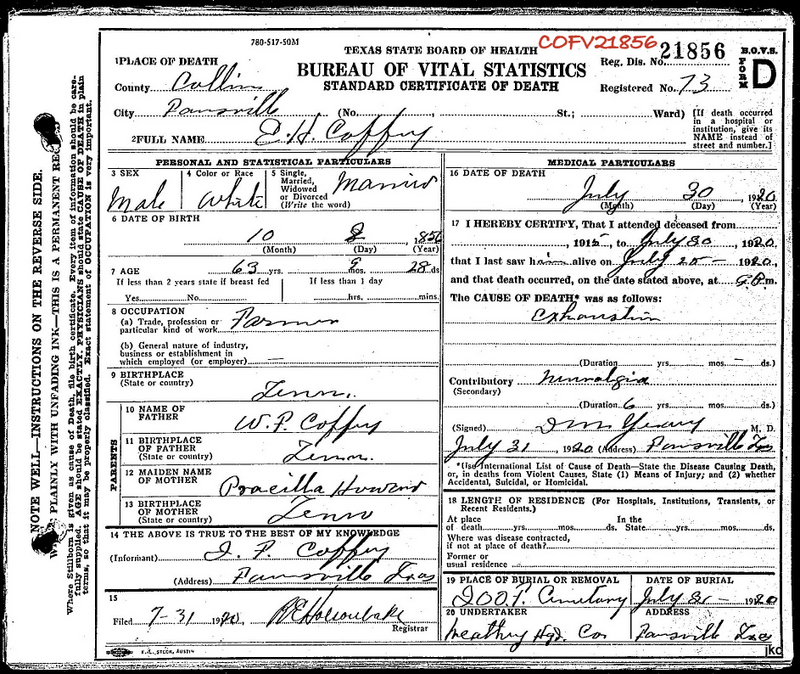 780-517-50M
TEXAS STATE BOARD OF HEALTH
COFV21856
Reg. Dis. No. 21856
B.O.V.S.
FORM D
1 PLACE OF DEATH
BUREAU OF VITAL STATISTICS
County Collin
STANDARD CERTIFICATE OF DEATH
Registered No. 73
City Farmersville (No. St.; Ward)
[If death occurred in a hospital or institution, give its NAME instead of street and number.]
2 FULL NAME E. H. Coffey
PERSONAL AND STATISTICAL PARTICULARS
3 SEX Male
4 Color or Race White
5 Single, Married, Widowed or Divorced (Write the word) Married
6 DATE OF BIRTH
10 2 1856
(Month) (Day) (Year)
7 AGE 63 yrs. 9 mos. 28 ds
If less than 2 years state if breast fed
Yes No
If less than 1 day
hrs. mins.
8 OCCUPATION
(a) Trade, profession or particular kind of work Farmer
(b) General nature of industry, business or establishment in which employed (or employer) —
9 BIRTHPLACE
(State or country) Tenn.
PARENTS
10 NAME OF FATHER W. P. Coffey
11 BIRTHPLACE OF FATHER (State or country) Tenn.
12 MAIDEN NAME OF MOTHER Pracilla
13 BIRTHPLACE OF MOTHER (State or country) Tenn
14 THE ABOVE IS TRUE TO THE BEST OF MY KNOWLEDGE
(Informant) I. P. Coffey
(Address) Farmersville Texas
15
Filed 7-31 1920
Registrar
MEDICAL PARTICULARS
16 DATE OF DEATH
July 30 1920
(Month) (Day) (Year)
17 I HEREBY CERTIFY, That I attended deceased from
, 191 , to July 30, 1920
that I last saw him alive on July 25 — 1920,
and that death occurred, on the date stated above, at m.
The CAUSE OF DEATH* was as follows:
Exhaustion
(Duration yrs. mos. — ds.)
Contributory (Secondary) Neuralgia
(Duration 6 yrs. mos. ds.)
(Signed) M. D.
July 31, 1920 (Address) Farmersville Tex
*Use International List of Cause of Death—State the Disease Causing Death, or, in deaths from Violent Causes, State (1) Means of Injury; and (2) whether Accidental, Suicidal, or Homicidal.
18 LENGTH OF RESIDENCE (For Hospitals, Institutions, Transients, or Recent Residents.)
At place of death yrs. mos. ds. In the State yrs. mos. ds.
Where was disease contracted, if not at place of death?
Former or usual residence
19 PLACE OF BURIAL OR REMOVAL
I.O.O.F. Cemetary
DATE OF BURIAL
July 31 — 1920
20 UNDERTAKER
ADDRESS
Farmersville Tex
E. L. STECK, AUSTIN
jkc
NOTE WELL—INSTRUCTIONS ON THE REVERSE SIDE.
PLAINLY WITH UNFADING INK—THIS IS A PERMANENT
Where Stillborn is given as cause of Death, file birth certificate. Every item of information should be carefully supplied. AGE should be stated EXACTLY. PHYSICIANS should state CAUSE OF DEATH in plain terms, so that it may be properly classified. Exact statement of OCCUPATION is very important.